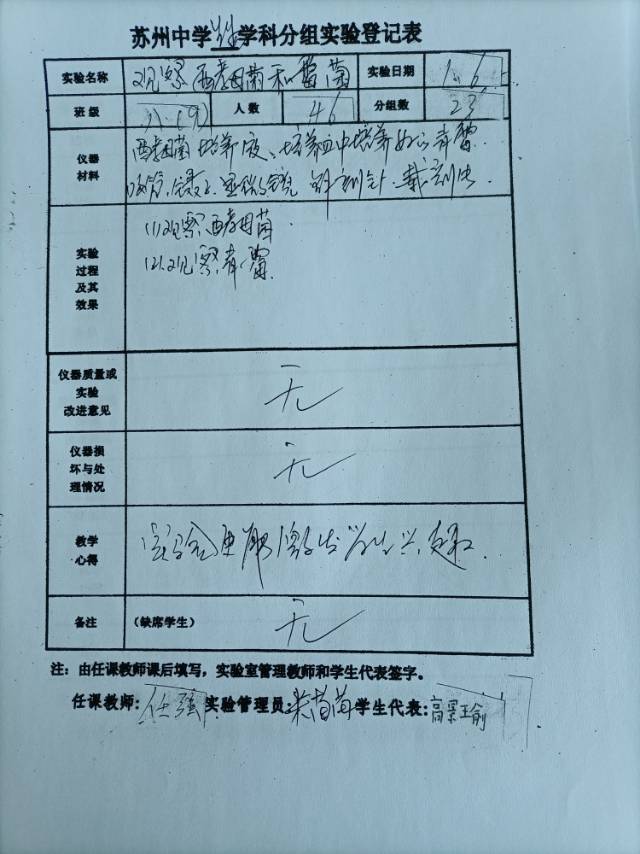 苏州中学生物学科分组实验登记表
实验名称 观察酵母菌和霉菌 实验日期 1.6.
班级 八(9) 人数 46 分组数 23
仪器材料 酵母菌培养液、培养皿中培养好的青霉
吸管、镊子、显微镜 解剖针 载玻片
实验过程及其效果 (1)观察酵母菌
(2)观察青霉
仪器质量或实验改进意见 无
仪器损坏与处理情况 无
教学心得 实验更能激发学生兴趣.
备注 (缺席学生) 无
注：由任课教师课后填写，实验室管理教师和学生代表签字。
任课教师: 任强 实验管理员: 学生代表: